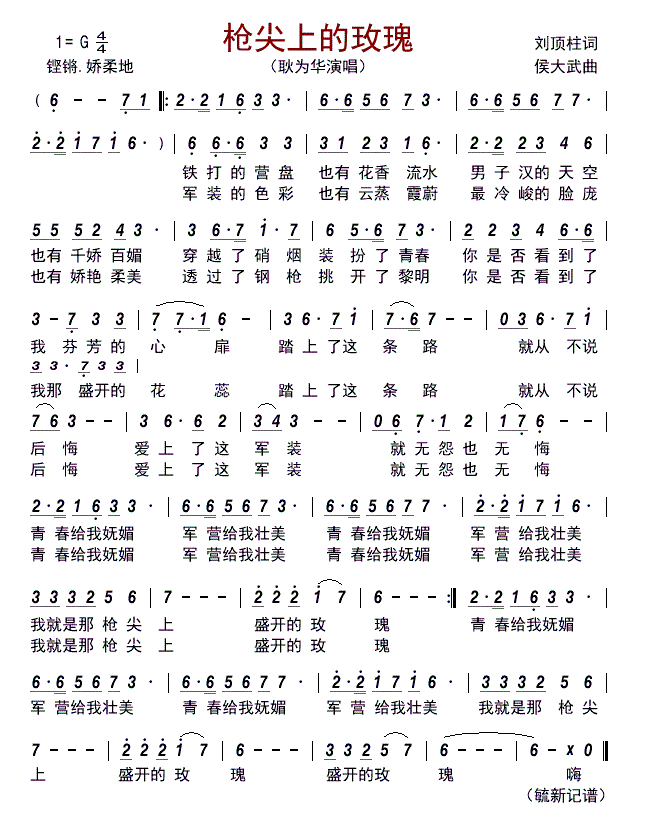 枪尖上的玫瑰
1= G 4/4
刘顶柱词
铿锵.娇柔地
（耿为华演唱）
侯大武曲
( 6 - - 7 1 |: 2·2 1 6 3 3· | 6·6 5 6 7 3· | 6·6 5 6 6 7· |
2·2 1 7 1 6· ) | 6 6·6 3 3 | 3 1 2 3 1 6· | 2·2 2 3 4 6 |
铁 打 的 营 盘 也有 花香 流水 男 子 汉的 天 空
军 装 的 色 彩 也有 云蒸 霞蔚 最 冷 峻的 脸 庞
5 5 5 2 4 3· | 3 6·7 1· 7 | 6 5·6 7 3· | 2 2 3 4 6·6 |
也有 千娇 百媚 穿 越 了 硝 烟 装 扮 了 青春 你 是 否 看到 了
也有 娇艳 柔美 透 过 了 钢 枪 挑 开 了 黎明 你 是 否 看到 了
3 - 7 3 3 | 7 7·1 6 - | 3 6·7 1 | 7·6 7 - - | 0 3 6·7 1 |
我 芬 芳 的 心 扉 踏 上 了这 条 路 就从 不说
3 3· 7 3 3 |
我那 盛开 的 花 蕊 踏 上 了这 条 路 就从 不说
7 6 3 - - | 3 6·6 6 2 | 3 4 3 - - | 0 6 7·1 2 | 1 7 6 - - |
后 悔 爱 上 了 这 军 装 就 无 怨 也 无 悔
后 悔 爱 上 了 这 军 装 就 无 怨 也 无 悔
2·2 1 6 3 3· | 6·6 5 6 7 3· | 6·6 5 6 7 3· | 2·2 1 7 1 6· |
青 春给我妩媚 军 营给我壮美 青 春给我妩媚 军 营给我壮美
青 春给我妩媚 军 营给我壮美 青 春给我妩媚 军 营给我壮美
3 3 3 2 5 6 | 7 - - - | 2 2 2 1 7 | 6 - - - :| 2·2 1 6 3 3· |
我就是那 枪 尖 上 盛开的 玫 瑰 青 春给我妩媚
我就是那 枪 尖 上 盛开的 玫 瑰
6·6 5 6 7 3· | 6·6 5 6 7 3· | 2·2 1 7 1 6· | 3 3 3 2 5 6 |
军 营给我壮美 青 春给我妩媚 军 营给我壮美 我就是那 枪 尖
7 - - - | 2 2 2 1 7 | 6 - - - | 2 2 2 1 7 | 6 - - - | 6 - x 0 ||
上 盛开的 玫 瑰 盛开的玫 瑰 嗨
（毓新记谱）